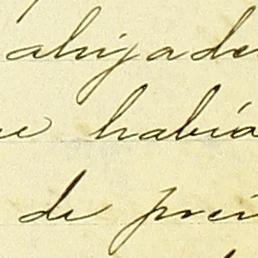 ahijade
ue había
de prei